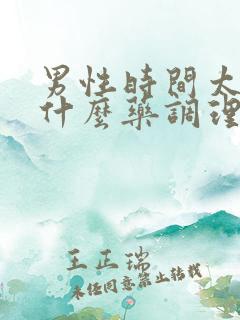 男性時間太
什麼藥調理
王正瑞
未经同意禁止转载